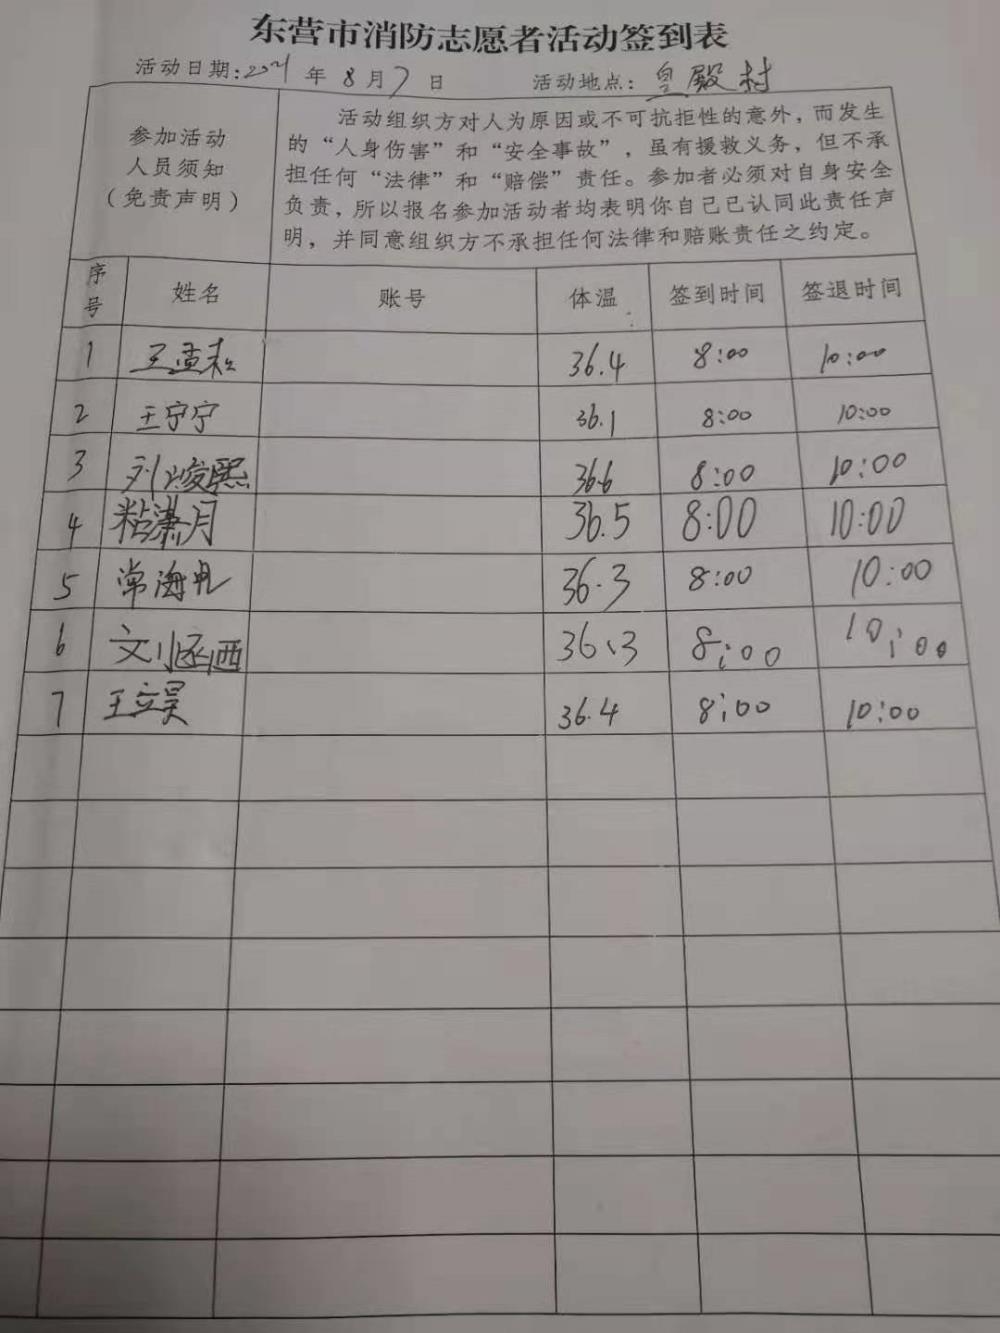 东营市消防志愿者活动签到表
活动日期:2021年8月7日 活动地点:皇殿村
参加活动
人员须知
(免责声明)
活动组织方对人为原因或不可抗拒性的意外,而发生
的“人身伤害”和“安全事故”,虽有援救义务,但不承
担任何“法律”和“赔偿”责任。参加者必须对自身安全
负责,所以报名参加活动者均表明你自己已认同此责任声
明,并同意组织方不承担任何法律和赔账责任之约定。
序号 姓名 账号 体温 签到时间 签退时间
1 王孟 36.4 8:00 10:00
2 王宁宁 36.1 8:00 10:00
3 刘浚熙 36.6 8:00 10:00
4 粘潇月 36.5 8:00 10:00
5 常海 36.3 8:00 10:00
6 文 36.3 8:00 10:00
7 王立昊 36.4 8:00 10:00